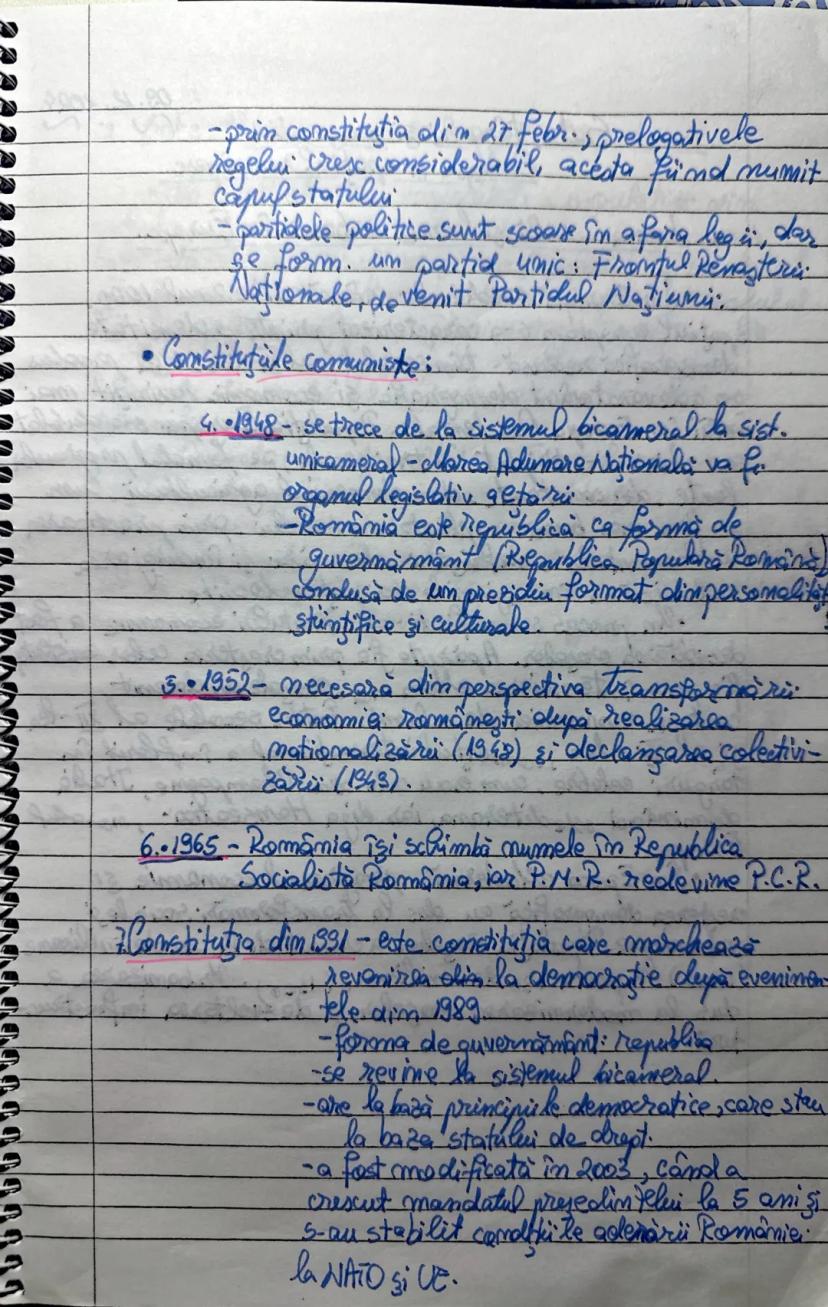 -prin constituția din 27 febr., prelogativele
regelui cresc considerabil, acesta fiind numit
capul statului
-partidele politice sunt scoase în afara legii, dar
se form. un partid unic: Frontul Renașterii
Naționale, devenit Partidul Națiunii.
• Constituțiile comuniste:
4. •1948 - se trece de la sistemul bicameral la sist.
unicameral - Marea Adunare Națională va fi
organul legislativ al țării
-România este republică ca formă de
guvernământ (Republica Populară Română)
condusă de un prezidiu format din personalități
științifice și culturale.
5. •1952 - necesară din perspectiva transformării
economiei românești după realizarea
naționalizării (1948) și declanșarea colectivi-
zării (1949).
6. •1965 - România își schimbă numele în Republica
Socialistă România, iar P.M.R. redevine P.C.R.
7. Constituția din 1991 - este constituția care marchează
revenirea la democrație după evenimen-
tele din 1989
-forma de guvernământ: republica
-se revine la sistemul bicameral.
-are la bază principiile democratice, care stau
la baza statului de drept.
-a fost modificată în 2003, când a
crescut mandatul președintelui la 5 ani și
s-au stabilit condițiile aderării României
la NATO și UE.